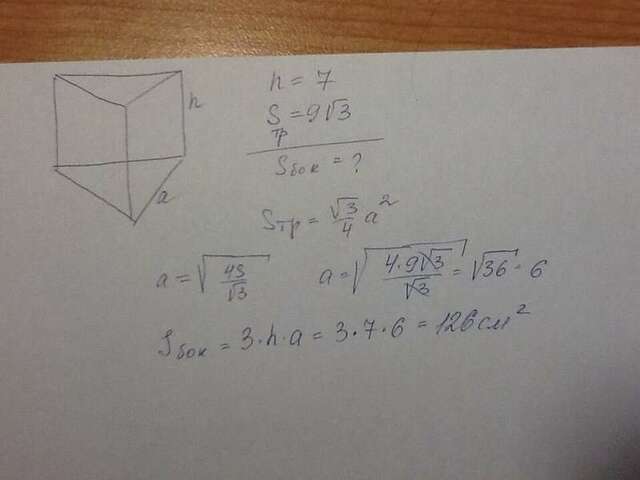 h
a
h = 7
Sтр = 9√3
Sбок = ?
Sтр = √3/4 a²
a = √(4S/√3) a = √(4·9√3/√3) = √36 = 6
Sбок = 3·h·a = 3·7·6 = 126 см²